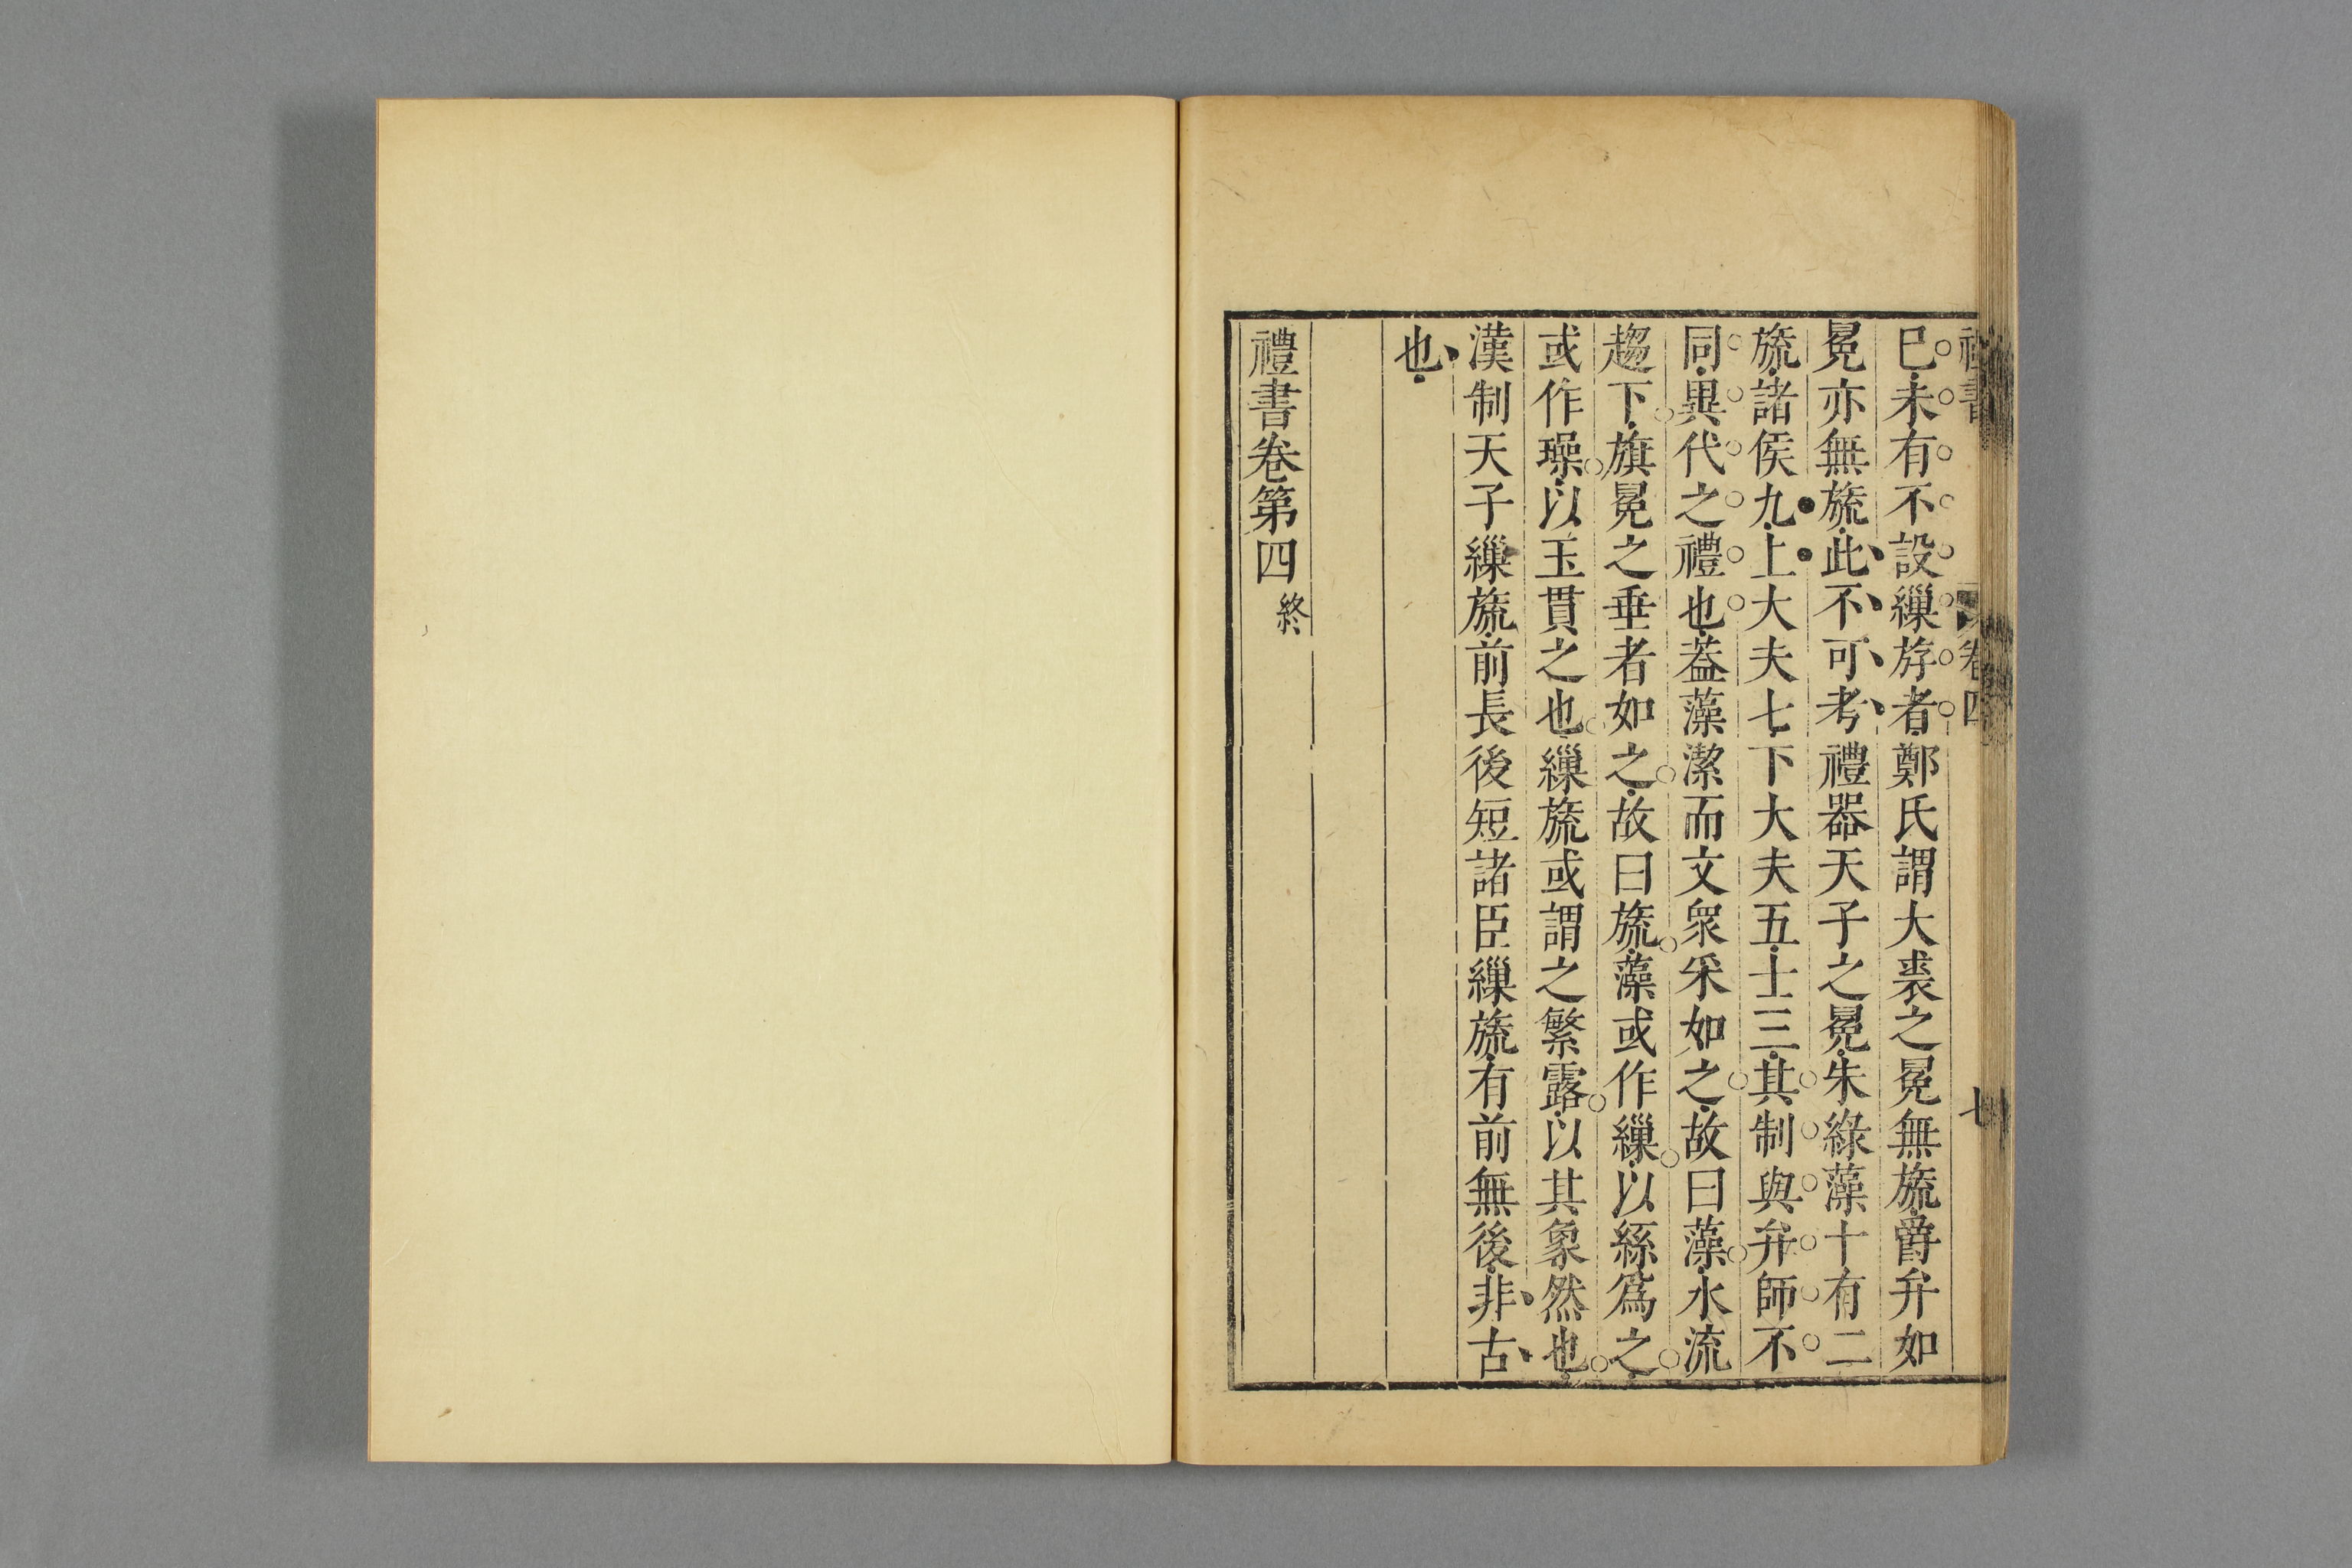 禮書
卷四
七
已未有不設繅斿者鄭氏謂大裘之冕無旒爵弁如
冕亦無旒此不可考禮器天子之冕朱綠藻十有二
旒諸侯九上大夫七下大夫五士三其制與弁師不
同異代之禮也葢藻潔而文衆采如之故曰藻水流
趨下旗冕之垂者如之故曰旒藻或作繅以絲爲之
或作璪以玉貫之也繅旒或謂之繁露以其象然也
漢制天子繅旒前長後短諸臣繅旒有前無後非古
也
禮書卷第四終